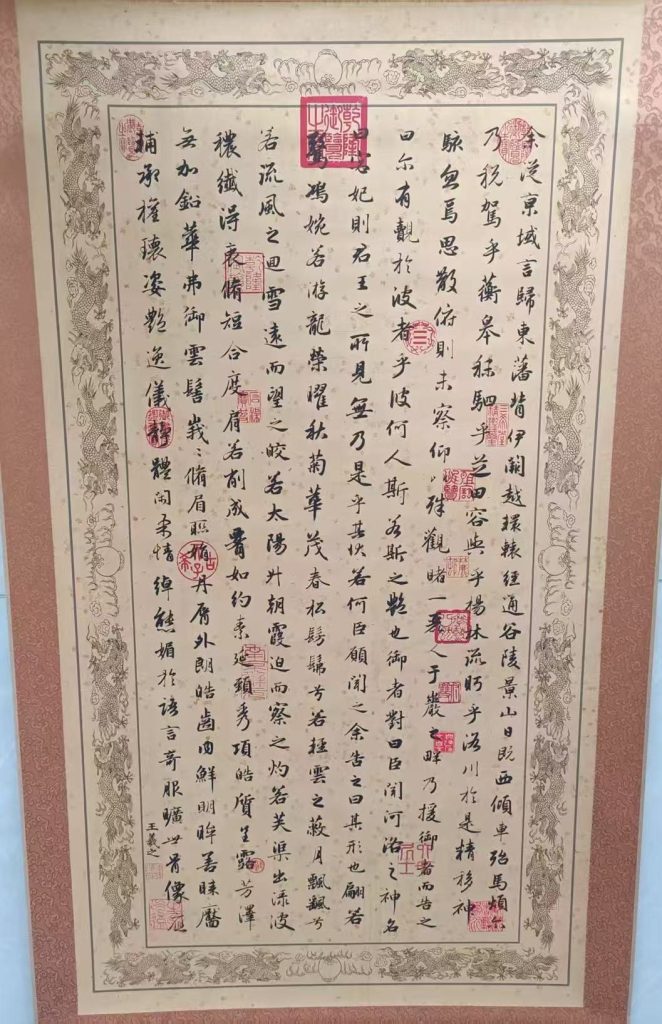 余從京域言歸東藩背伊闕越轘轅經通谷陵景山日既西傾車殆馬煩尔
乃稅駕乎蘅皋秣駟乎芝田容與乎楊林流眄乎洛川於是精移神
駭忽焉思散俯則未察仰以殊觀睹一麗人于巖之畔乃援御者而告之
曰尔有覿於彼者乎彼何人斯若斯之艷也御者對曰臣聞河洛之神名
曰宓妃則君王之所見無乃是乎其狀若何臣願聞之余告之曰其形也翩若
驚鴻婉若游龍榮曜秋菊華茂春松髣髴兮若輕雲之蔽月飄颻兮
若流風之迴雪遠而望之皎若太陽升朝霞迫而察之灼若芙蕖出淥波
穠纖得衷脩短合度肩若削成腰如約素延頸秀項皓質呈露芳澤
無加鉛華弗御雲髻峩〻脩眉聯娟丹脣外朗皓齒內鮮明眸善睞靨
輔承權瓌姿艷逸儀靜體閑柔情綽態媚於語言奇服曠世骨像應
王羲之
乾隆御覽之寶
乾隆
古希天子